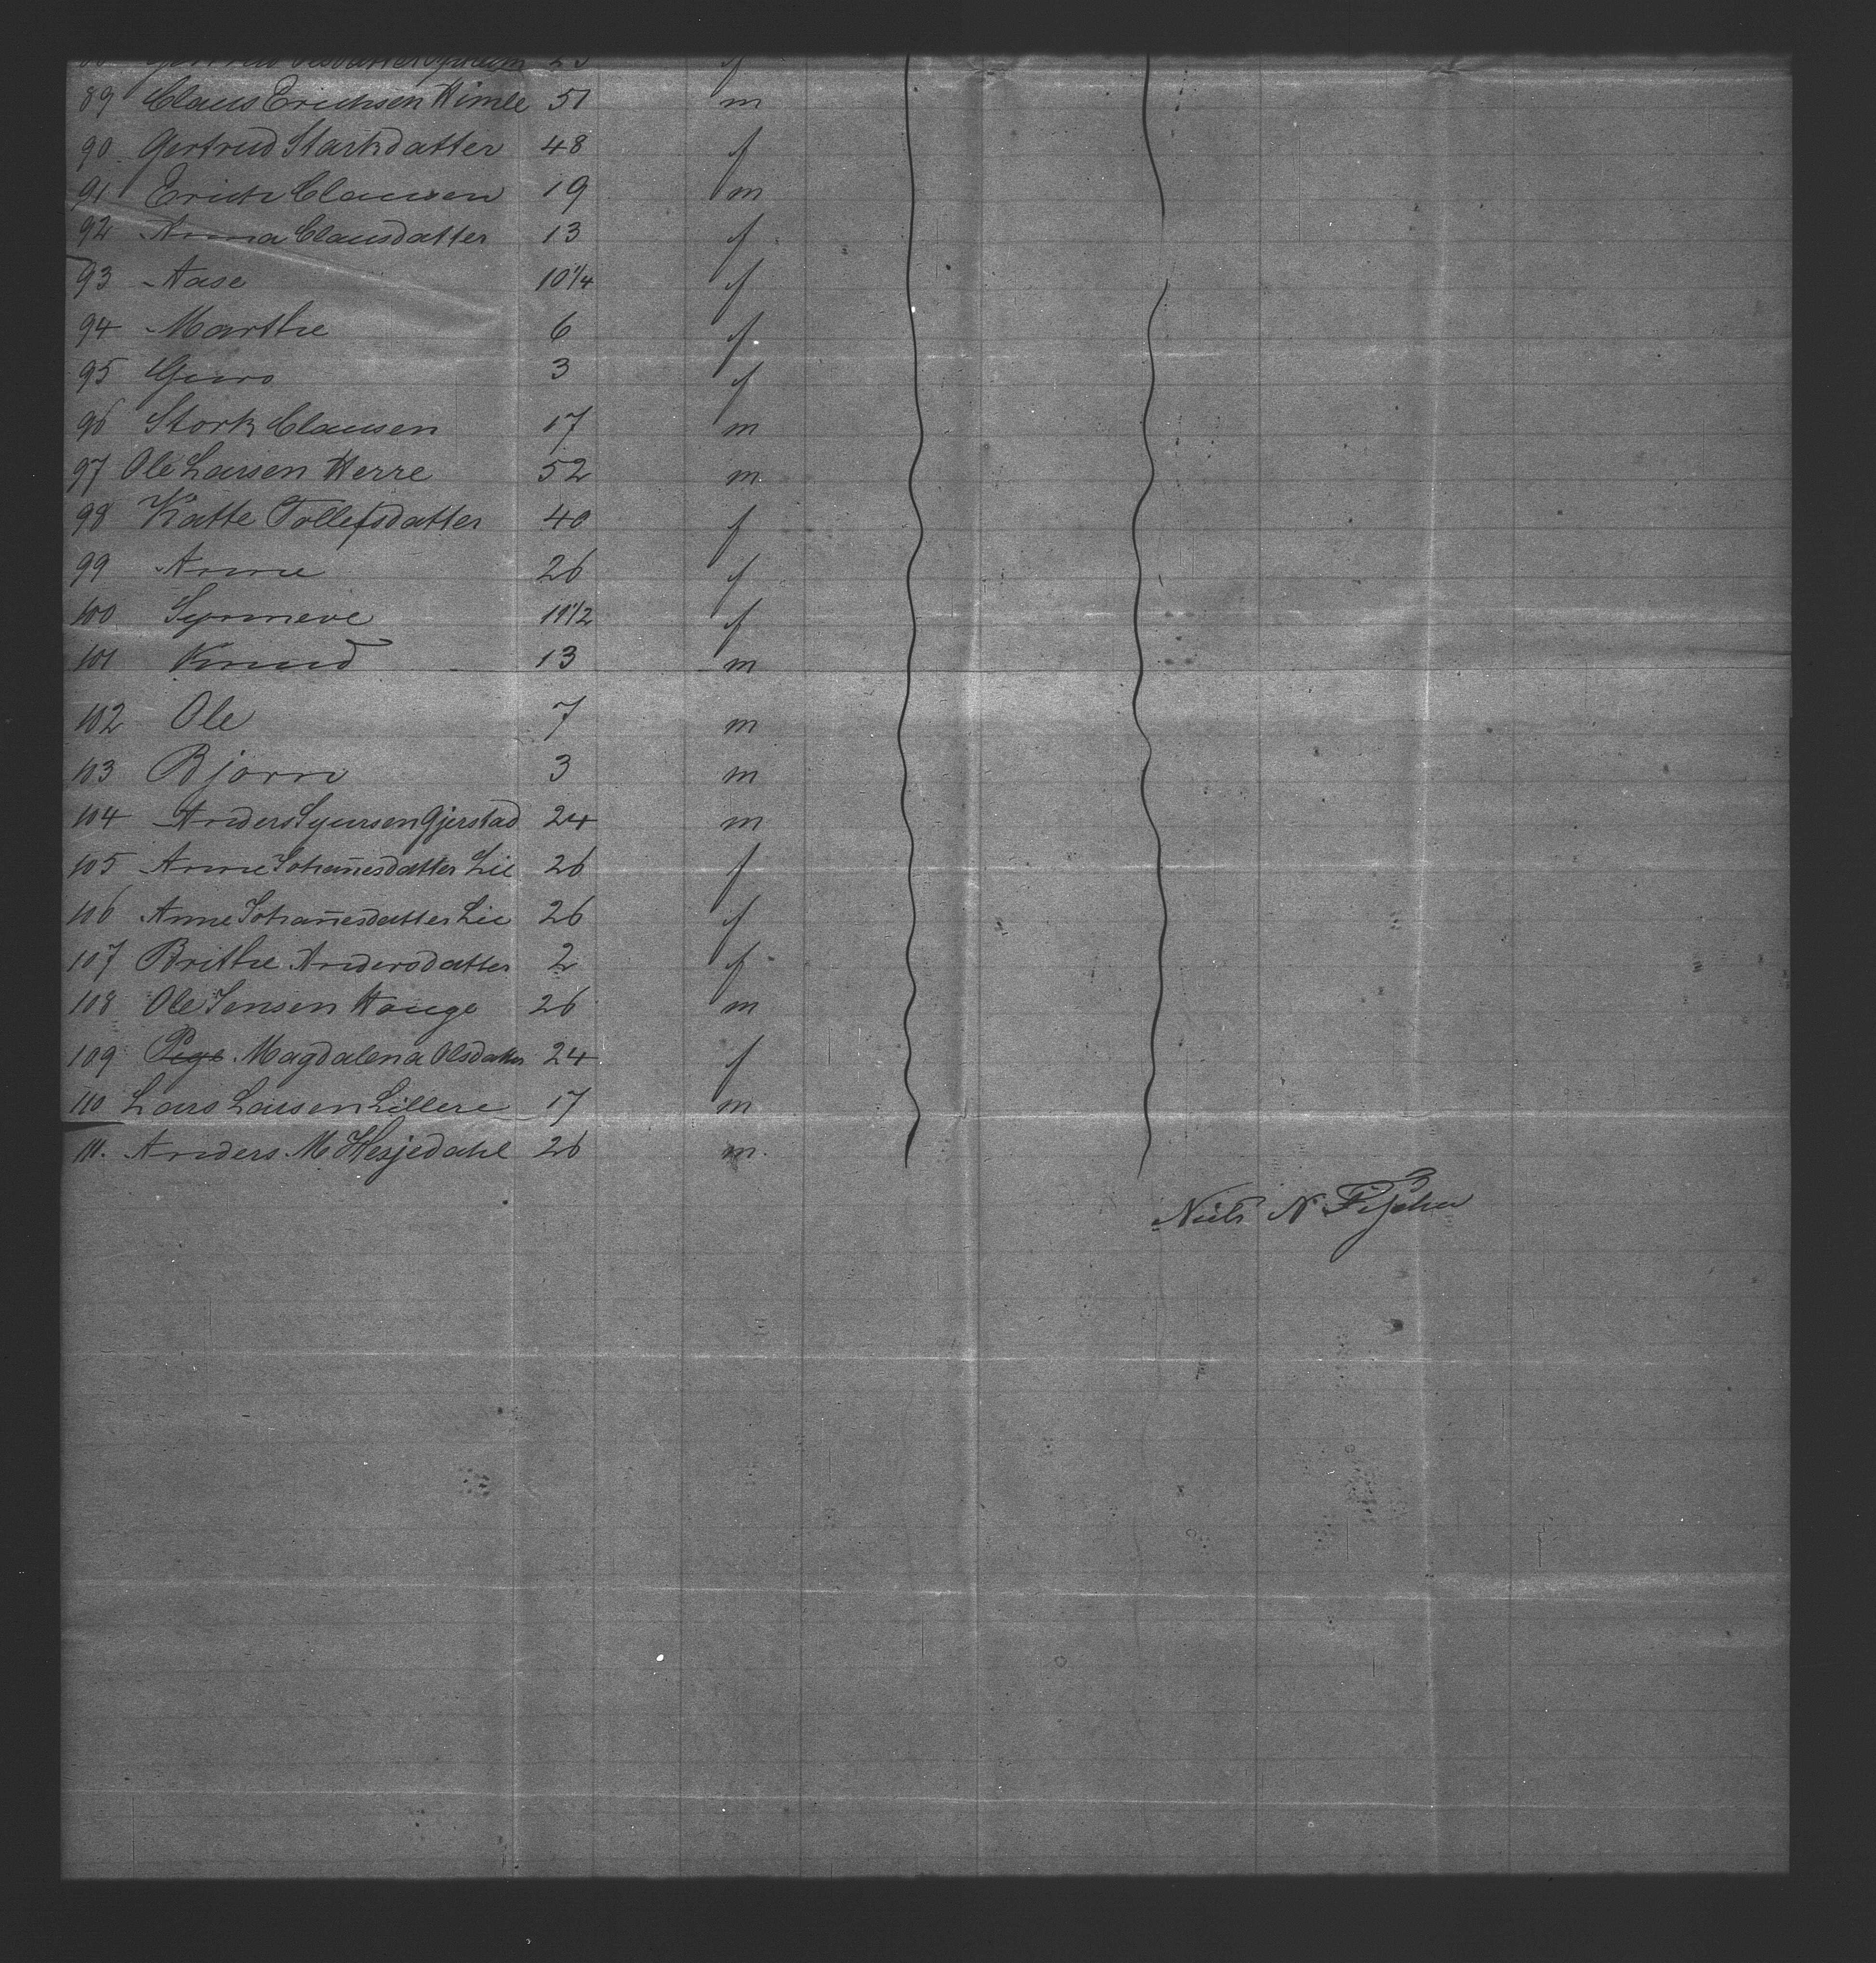 89 Claus Erichsen Himle 51 m
90 Gertrud Starksdatter 48 f
91 Erich Clausen 19 m
92 Anna Clausdatter 13 f
93 Aase 10 1/4 f
94 Marthe 6 f
95 Guro 3 f
96 Stork Clausen 17 m
97 Ole Larsen Herre 52 m
98 Katte Tollefsdatter 40 f
99 Anne 26 f
100 Synneve 11 1/2 f
101 Knud 13 m
102 Ole 7 m
103 Bjorn 3 m
104 Anders Sjursen Gjerstad 24 m
105 Anne Johan̄esdatter Lie 26 f
106 Anne Johan̄esdatter Lie 26 f
107 Brithe Andersdatter 2 f
108 Ole Jensen Hauge 26 m
109 Pege Magdalena Olsdatter 24 f
110 Lars Larsen Lillere 17 m
111. Anders M Hesjedahl 26 m.
Niels N Fischer